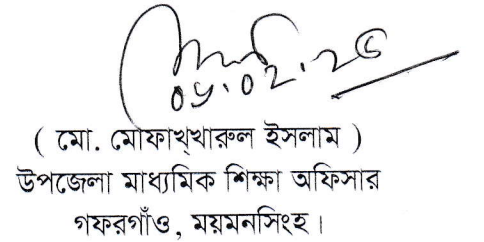 ০৬.০২.২৫
( মো. মোফাখ্খারুল ইসলাম )
উপজেলা মাধ্যমিক শিক্ষা অফিসার
গফরগাঁও, ময়মনসিংহ।